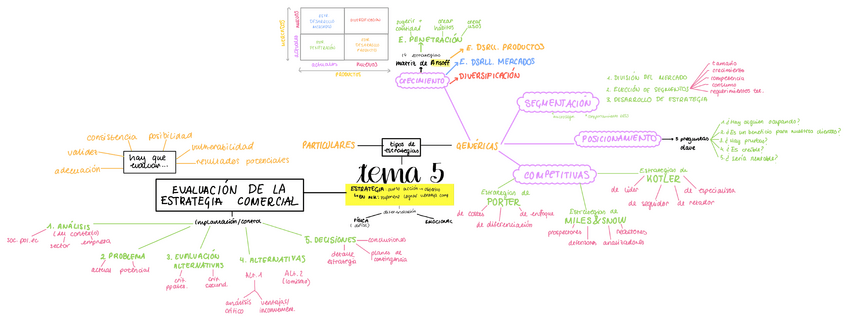 MERCADOS
NUEVOS
ACTUALES
EST. DESARROLLO MERCADO
DIVERSIFICACIÓN
EST. PENETRACIÓN
EST. DESARROLLO PRODUCTO
actuales
nuevos
PRODUCTOS
sugerir + cantidad
crear hábitos
E. PENETRACIÓN
4 estrategias
matriz de Ansoff
CRECIMIENTO
E. DSRLL. PRODUCTOS
E. DSRLL. MERCADOS
DIVERSIFICACIÓN
SEGMENTACIÓN
1. DIVISIÓN DEL MERCADO
2. ELECCIÓN DE SEGMENTOS
3. DESARROLLO DE ESTRATEGIA
tamaño
crecimiento
competencia
consumo
requerimientos tec.
POSICIONAMIENTO
5 preguntas clave
1. ¿Hay alguien ocupando?
2. ¿Es un beneficio para nuestros clientes?
3. ¿Hay pruebas?
4. ¿Es creíble?
5. ¿Sería rentable?
PARTICULARES
tipos de estrategias
GENÉRICAS
COMPETITIVAS
Estrategias de PORTER
de costes
de diferenciación
de enfoque
Estrategias de KOTLER
de líder
de seguidor
de retador
de especialista
Estrategias de MILES&SNOW
prospectores
defensores
analizadores
reactores
tema 5
ESTRATEGIA
FÍSICA
EMOCIONAL
consistencia
posibilidad
validez
vulnerabilidad
adecuación
resultados potenciales
hay que evaluar...
EVALUACIÓN DE LA
ESTRATEGIA COMERCIAL
implantación/control
1. ANÁLISIS
(del contexto)
soc. pol. ec.
sector
empresa
2. PROBLEMA
actual
potencial
3. EVALUACIÓN
ALTERNATIVAS
crit. ppales.
crit. secund.
4. ALTERNATIVAS
Alt. 1
Alt. 2
análisis crítico
ventajas/ inconvenien.
5. DECISIONES
conclusiones
detalle estrategia
planes de contingencia